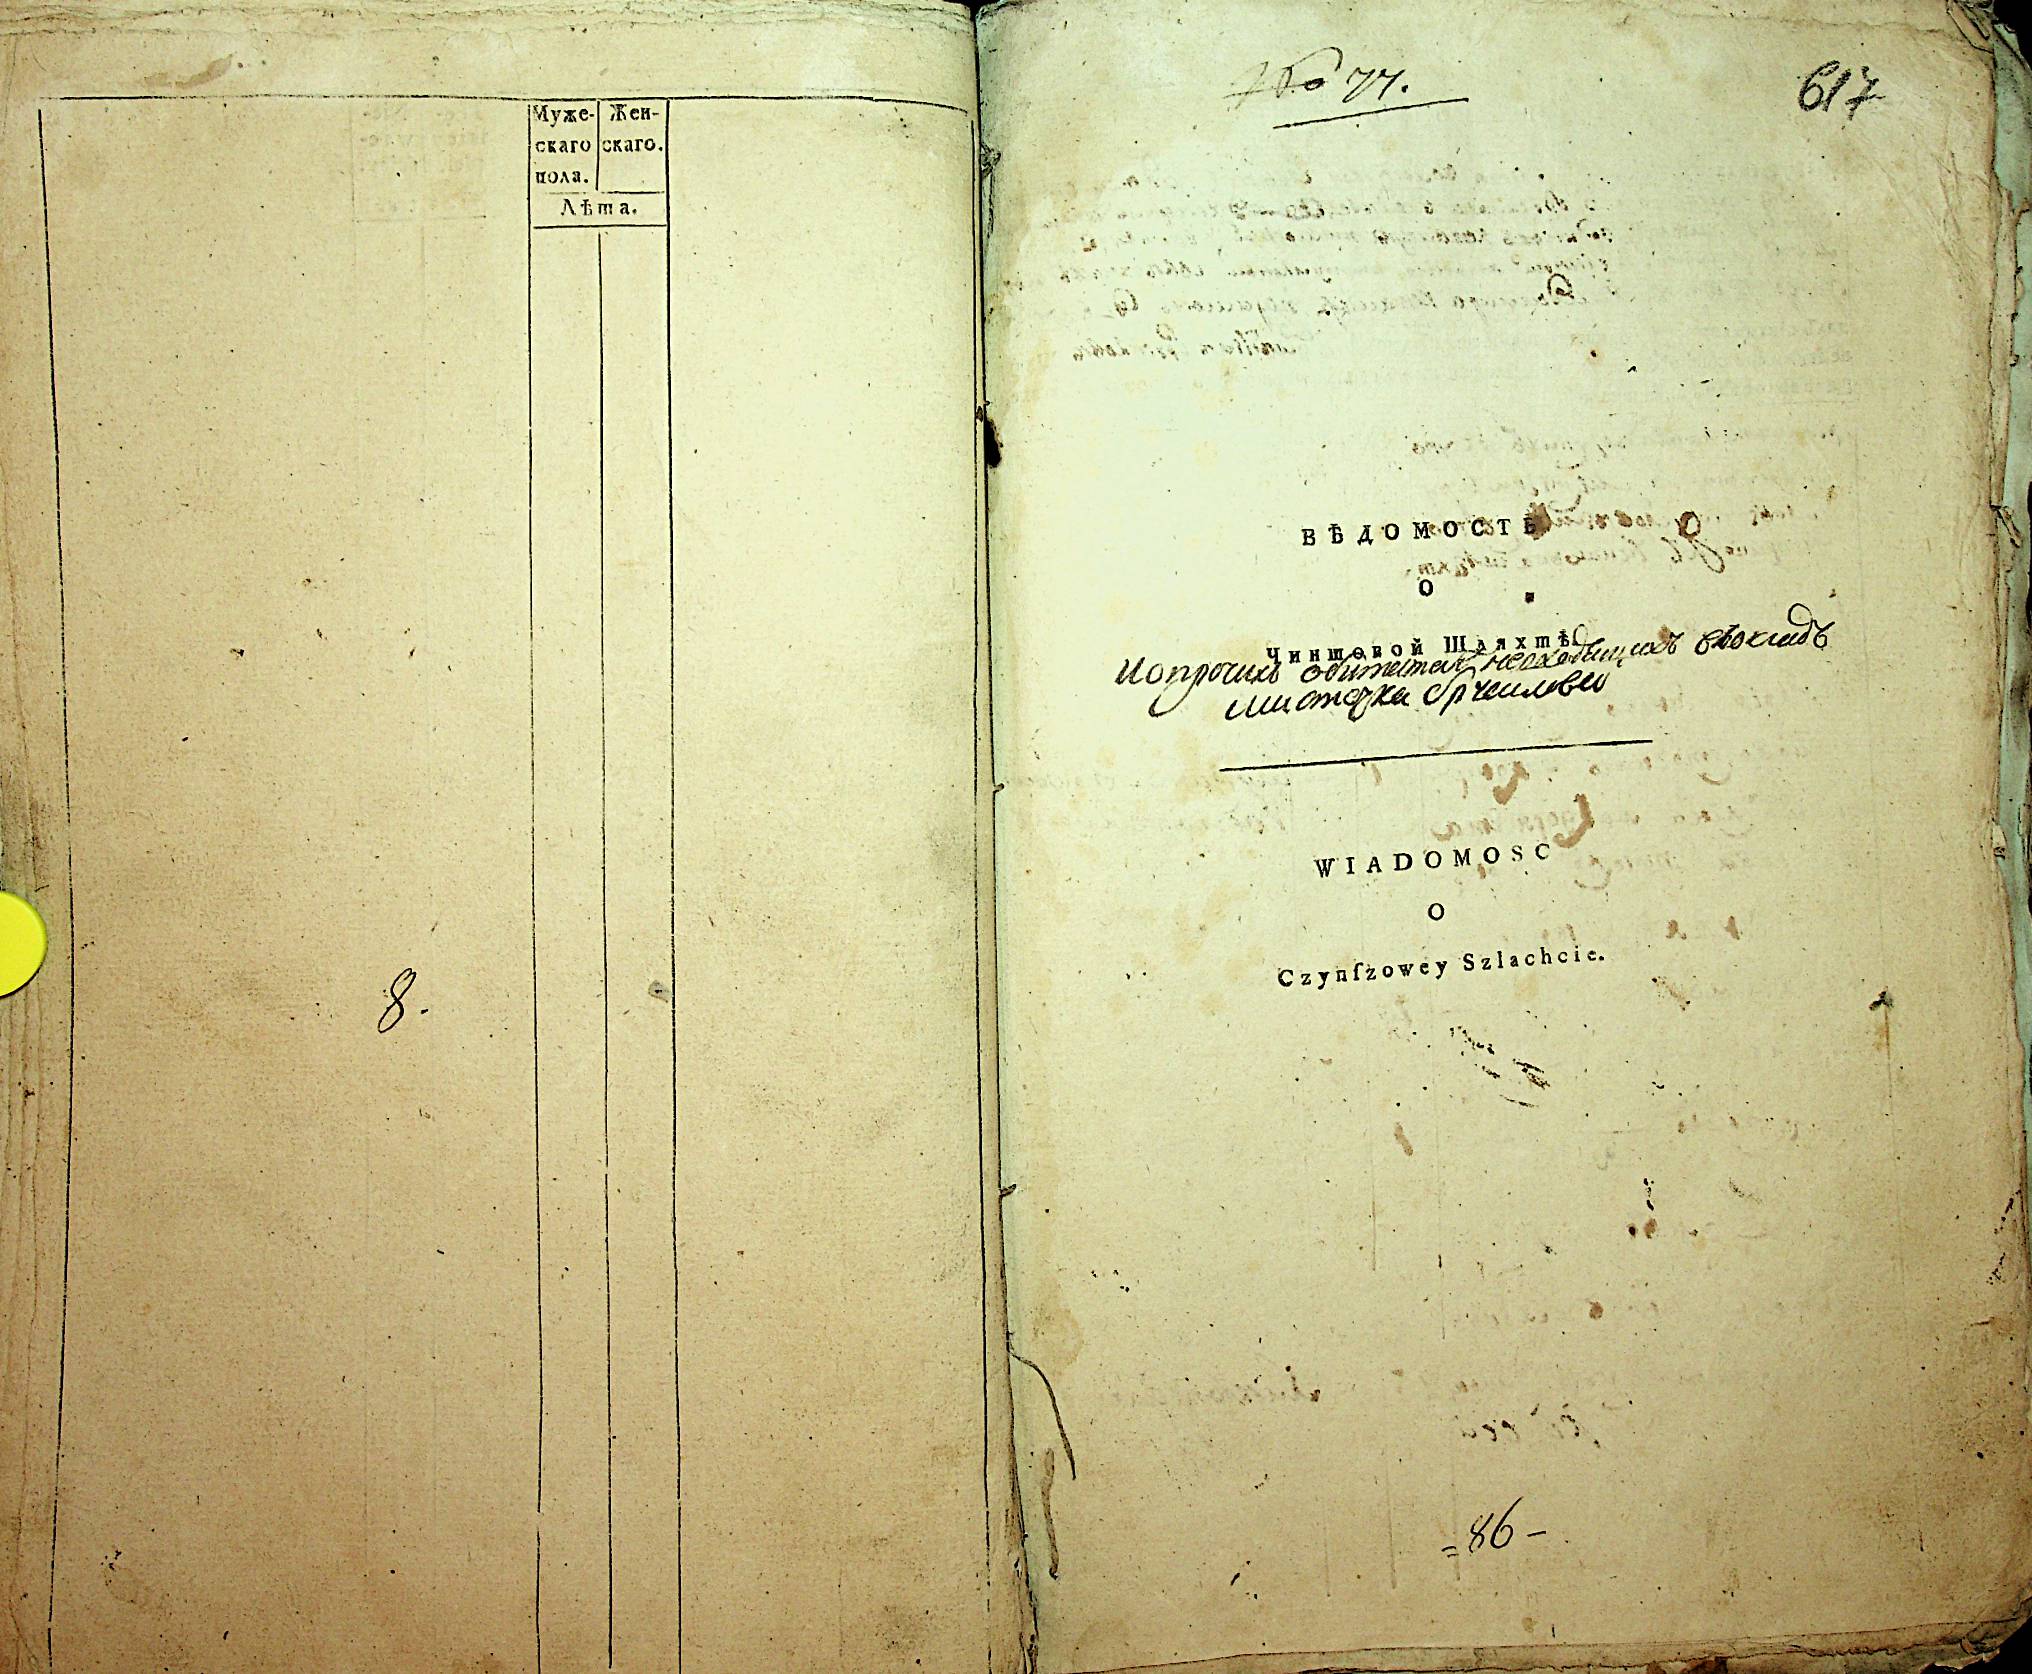 Муже- Жен-
скаго скаго.
пола.
Лѣта.
8.
№ 77.
617
ВѢДОМОСТЬ
О
Чиншовой Шляхтѣ
и о прочихъ обитателяхъ невходящихъ въ окладъ
мистечка
WIADOMOSC
O
Czynſzowey Szlachcie.
= 86 -